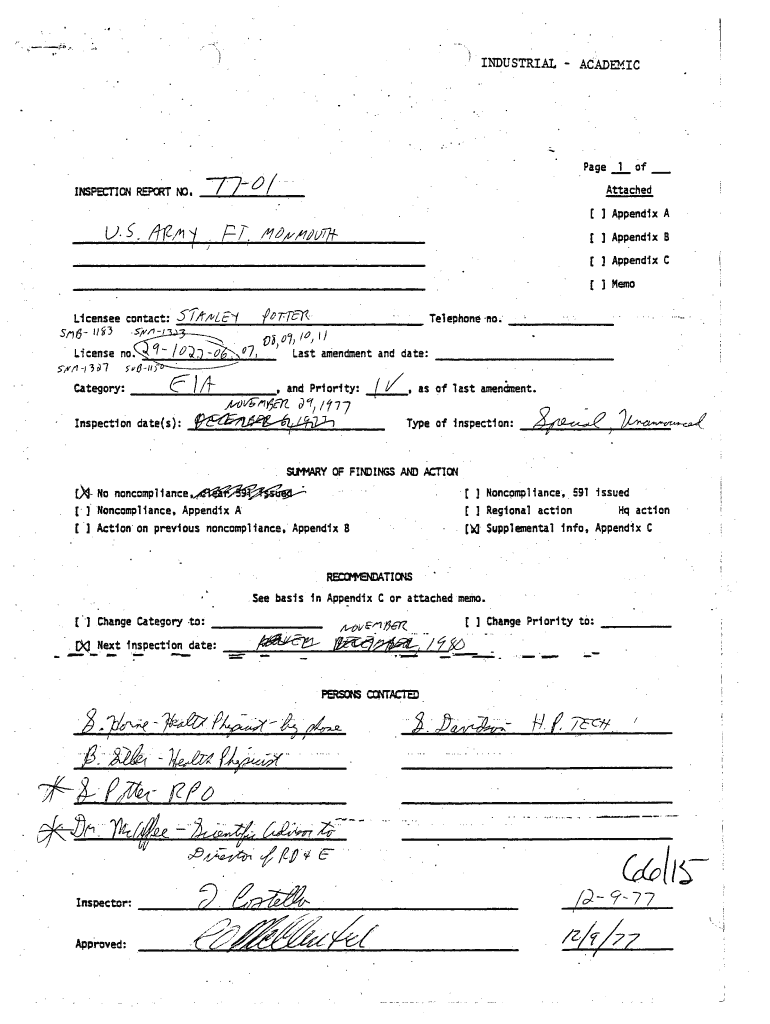 INDUSTRIAL - ACADEMIC
Page 1 of __
INSPECTION REPORT NO. 77-01
Attached
[ ] Appendix A
U.S. ARMY, FT. MONMOUTH
[ ] Appendix B
[ ] Appendix C
[ ] Memo
Licensee contact: STANLEY POTTER Telephone no.
SMB-1183 SNM-1323
08,09,10,11
License no. 29-1022-06, 07, Last amendment and date:
SNM-1327 SUB-1150
Category: E1A, and Priority: IV, as of last amendment.
NOVEMBER 29, 1977
Inspection date(s): DECEMBER 1977 Type of inspection: Special, Unannounced
SUMMARY OF FINDINGS AND ACTION
[X] No noncompliance, clear 591 issued [ ] Noncompliance, 591 issued
[ ] Noncompliance, Appendix A [ ] Regional action Hq action
[ ] Action on previous noncompliance, Appendix B [X] Supplemental info, Appendix C
RECOMMENDATIONS
See basis in Appendix C or attached memo.
[ ] Change Category to: [ ] Change Priority to:
NOVEMBER
[X] Next inspection date: DECEMBER, 1980
PERSONS CONTACTED
S. Horne - Health Physicist - by phone S. Davidson H.P. TECH
B. Siller - Health Physicist
* S Potter RPO
* Dr. McAffee - Scientific Advisor to
Director of RD & E
Inspector: J Costello 12-9-77
Approved: 12/9/77